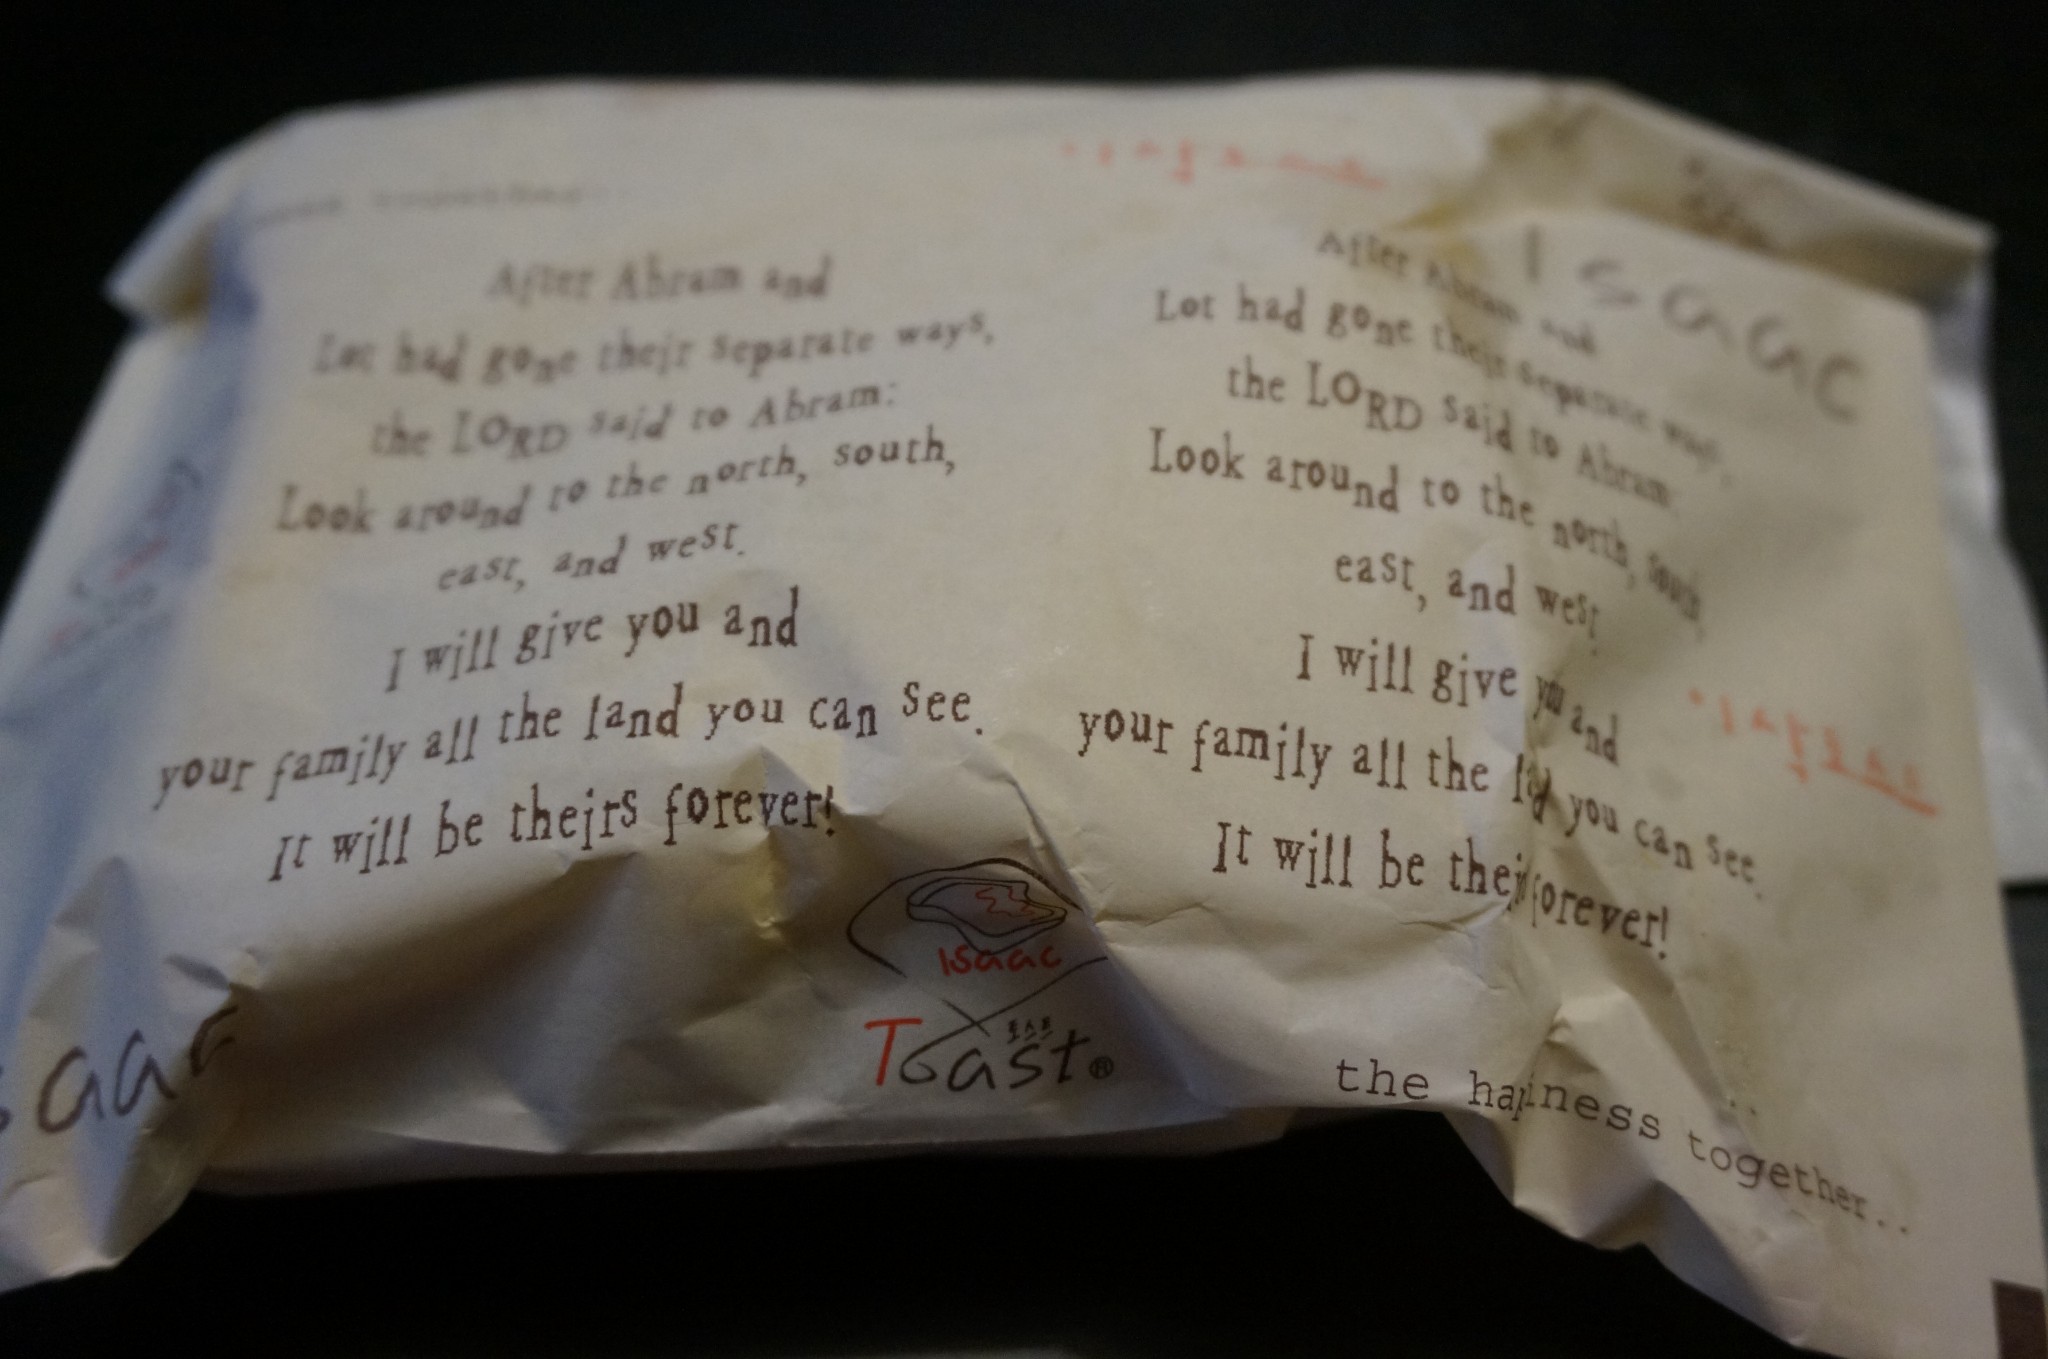 After Abram and
Lot had gone their separate ways,
the LORD said to Abram:
Look around to the north, south,
east, and west.
I will give you and
your family all the land you can see.
It will be theirs forever!
Isaac
After Abram and
Lot had gone their separate ways,
the LORD said to Abram:
Look around to the north, south,
east, and west
I will give you and
your family all the land you can see.
It will be their forever!
saac
Isaac
토스트
Toast®
the happiness together..